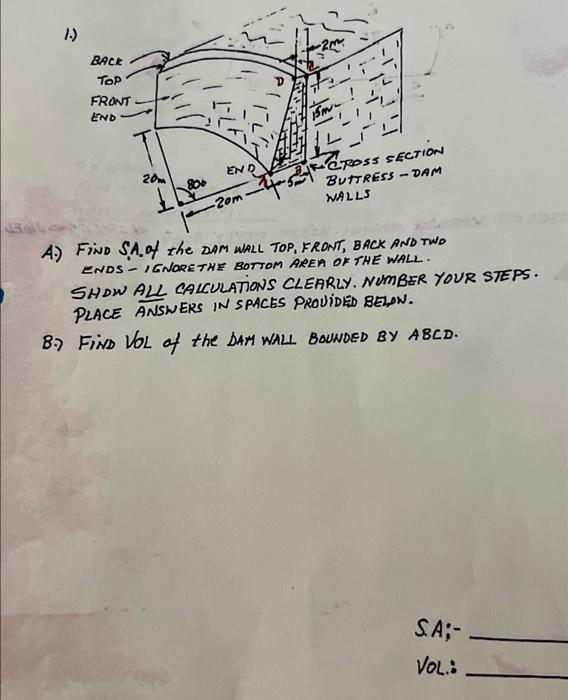 1.)
2m
BACK
TOP
D
FRONT
15m
END
CROSS SECTION
END
B
BUTTRESS - DAM
20m
80°
A
5m
WALLS
20m
A.) FIND S.A. of the DAM WALL TOP, FRONT, BACK AND TWO
ENDS - IGNORE THE BOTTOM AREA OF THE WALL.
SHOW ALL CALCULATIONS CLEARLY. NUMBER YOUR STEPS.
PLACE ANSWERS IN SPACES PROVIDED BELOW.
B.) FIND VOL of the DAM WALL BOUNDED BY ABCD.
S.A;-
VOL.: